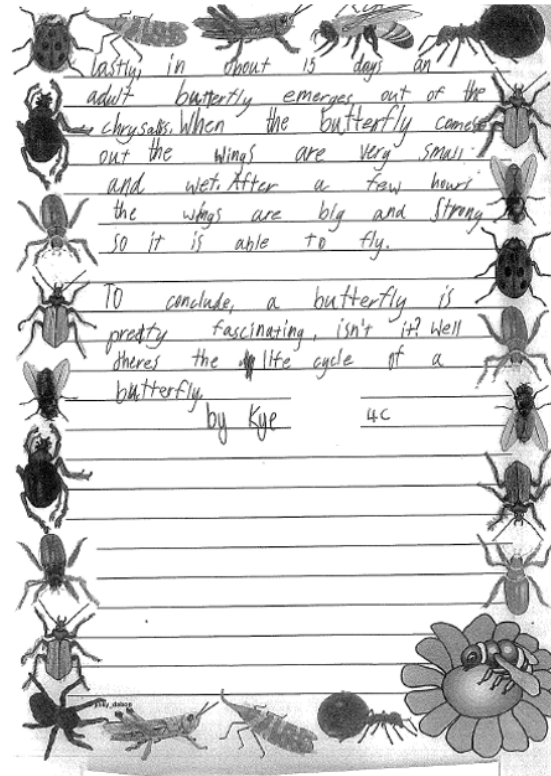 Lastly, in about 15 days an
adult butterfly emerges out of the
chrysalis. When the butterfly comes
out the wings are very small
and wet. After a few hours
the wings are big and strong
so it is able to fly.
To conclude, a butterfly is
pretty fascinating, isn't it? Well
theres the life cycle of a
butterfly.
by Kye 4C